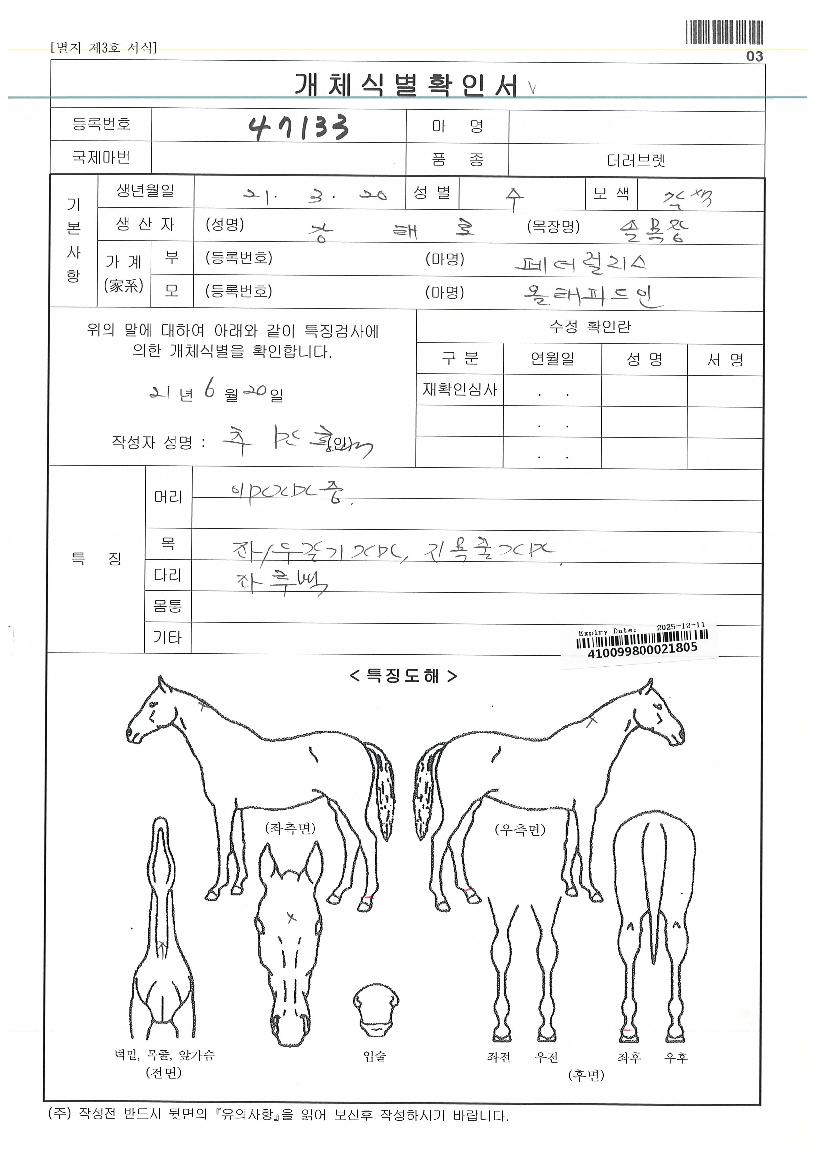 [별지 제3호 서식]
03
개체식별확인서
등록번호 47133 마 명
국제마번 품 종 더러브렛
기본사항
생년월일 21. 3. 20 성별 수 모색 갈색
생산자 (성명) 장 태 로 (목장명) 솔목장
가계(家系) 부 (등록번호) (마명) 페더럴리스
모 (등록번호) (마명) 올태피드인
위의 말에 대하여 아래와 같이 특징검사에
의한 개체식별을 확인합니다.
21 년 6 월 20 일
작성자 성명 :
수정 확인란
구분 연월일 성명 서명
재확인심사 . .
. .
. .
특 징
머리
목
다리 좌후백
몸통
기타
Expiry Date: 2025-12-11
410099800021805
< 특징도해 >
(좌측면) (우측면)
턱밑, 목줄, 앞가슴
(전면)
입술
좌전 우전 좌후 우후
(후면)
(주) 작성전 반드시 뒷면의 『유의사항』을 읽어 보신후 작성하시기 바랍니다.